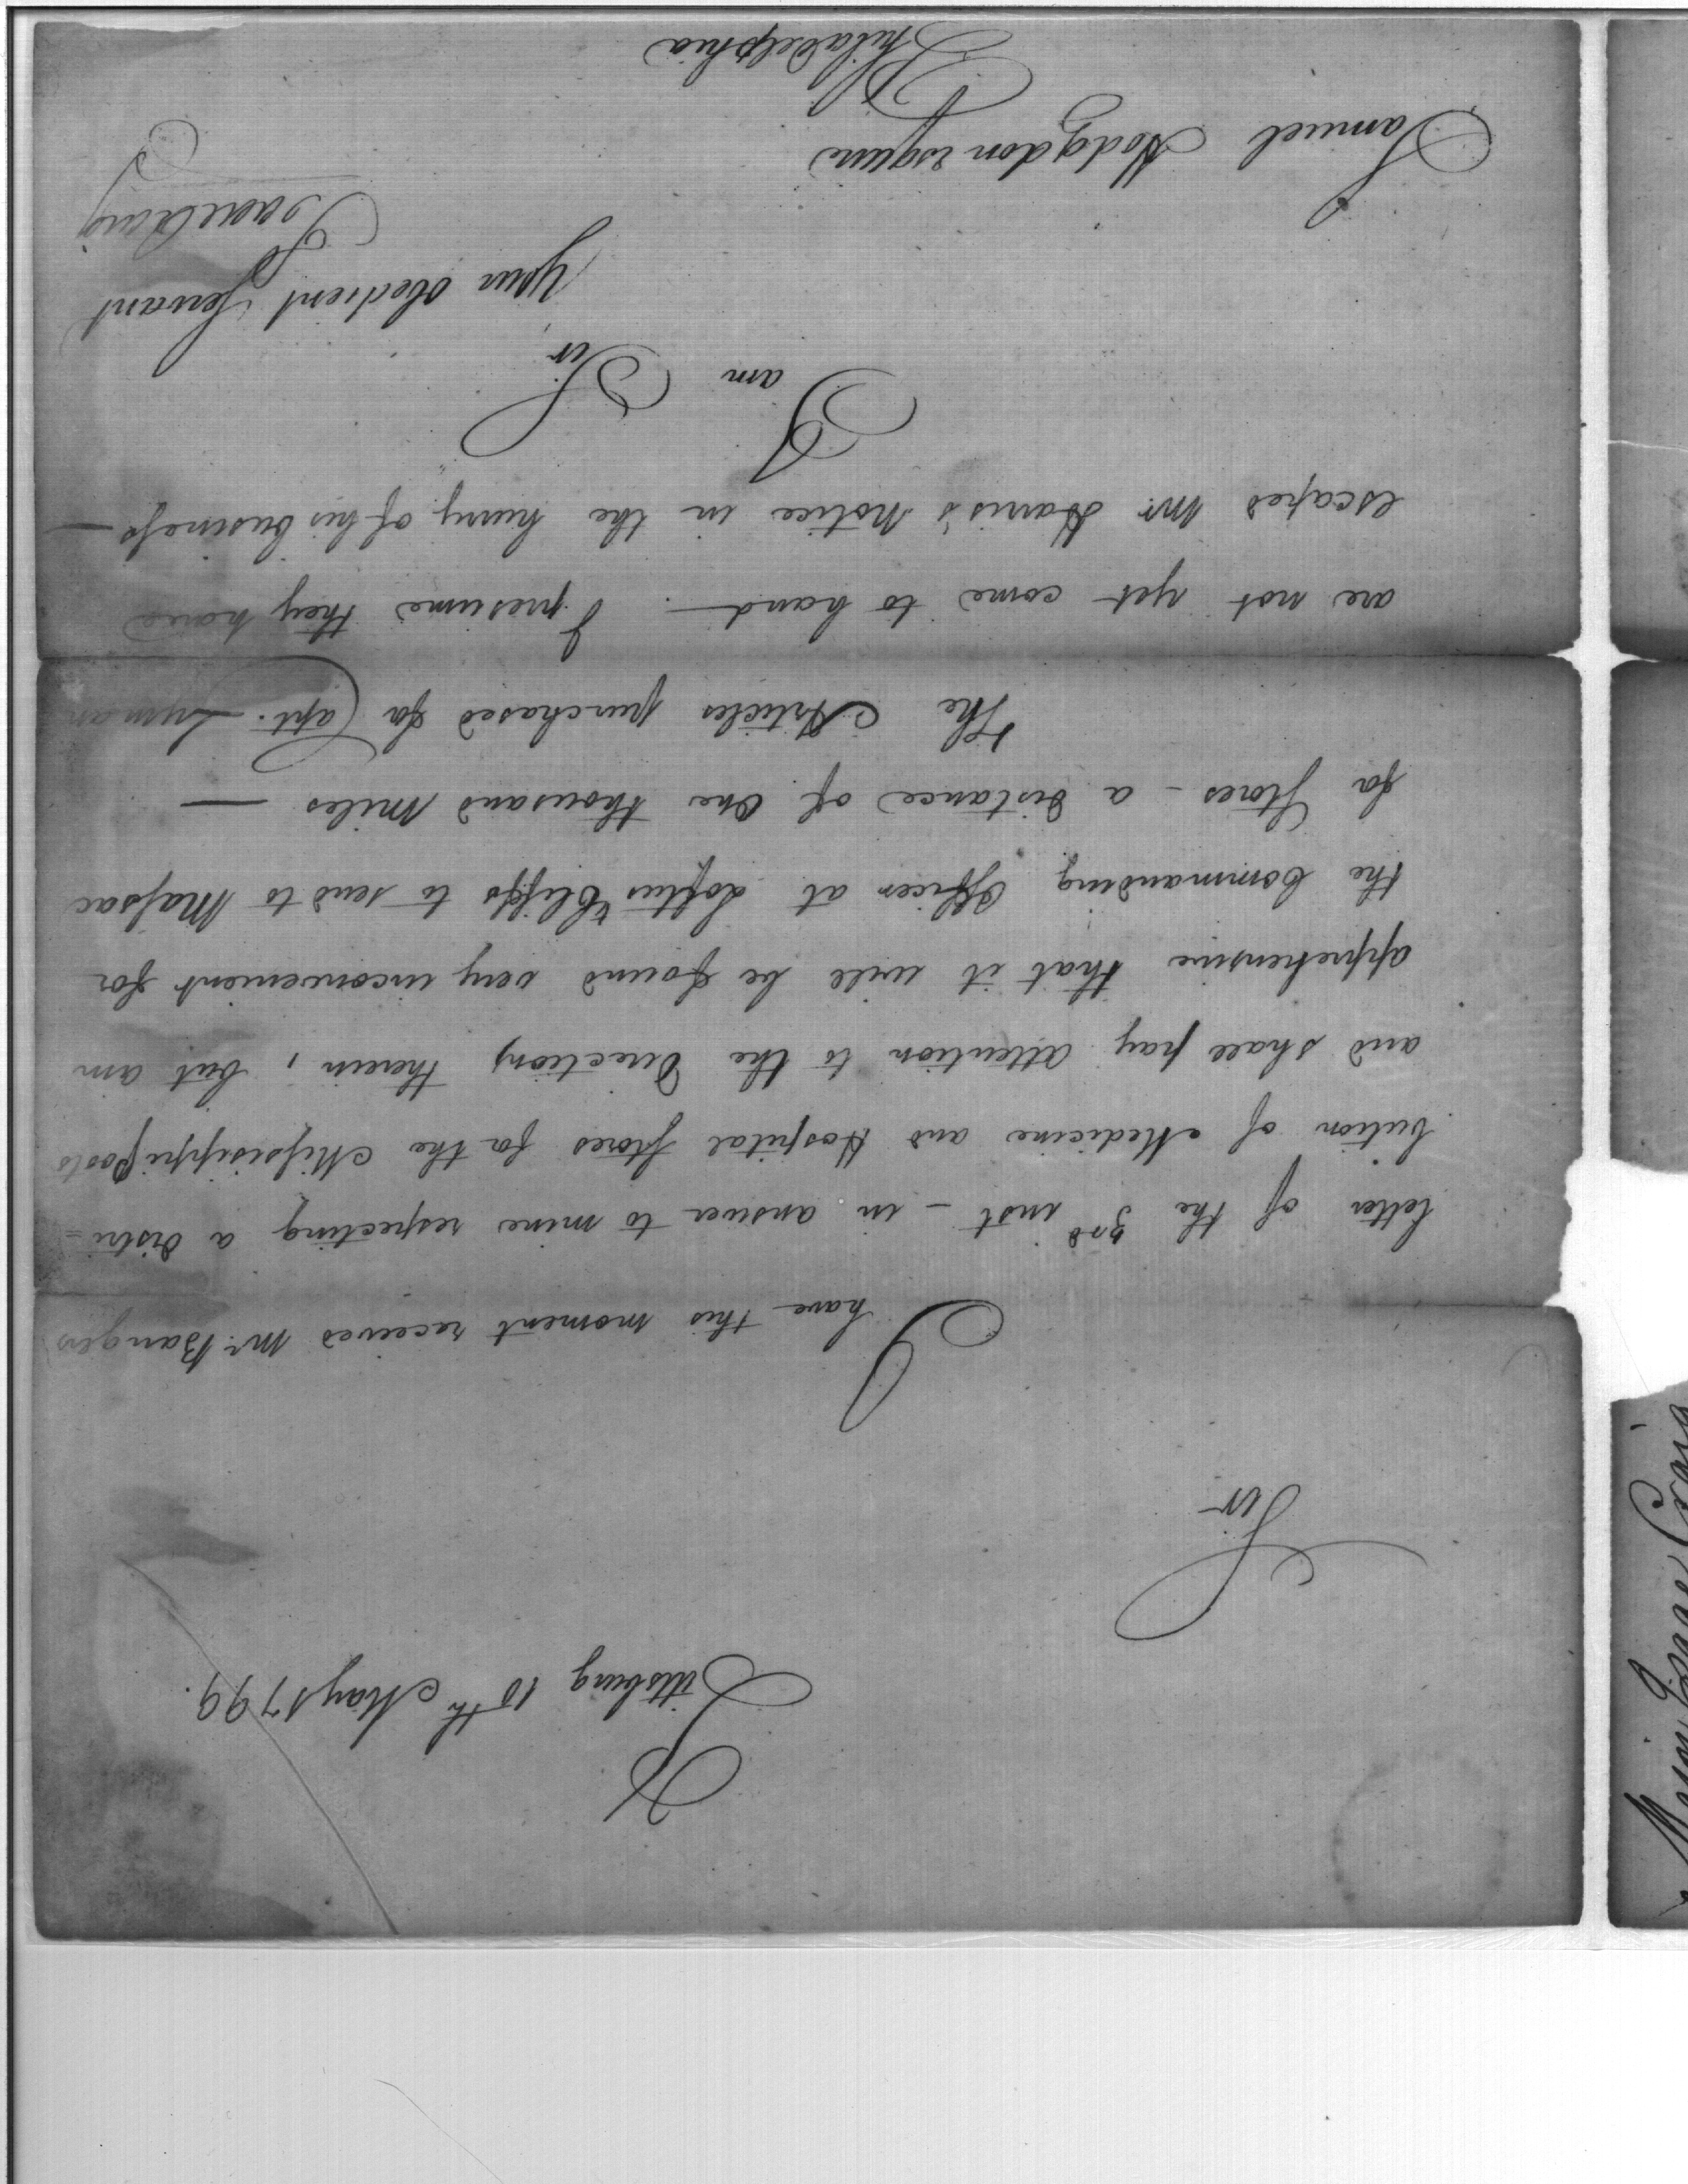 Pittsburg 10th May 1799.
Sir
I have this moment received Mr. Bangers
letter of the 3rd inst - in answer to mine respecting a distri=
bution of Medicine and Hospital Stores for the Missisippi Posts
and shall pay attention to the Directions therein, but am
apprehensive that it will be found very inconvenient for
the Commanding Officer at Loftus Cliffs to send to Massac
for Stores - a distance of One thousand Miles —
The Articles purchased for Capt. Lyman
are not yet come to hand - I presume they have
escaped Mr. Harris's Notice in the hurry of his business —
I am Sir,
Your Obedient Servant
Isaac Craig
Samuel Hodgdon esquire
Philadelphia
Major Isaac Craig